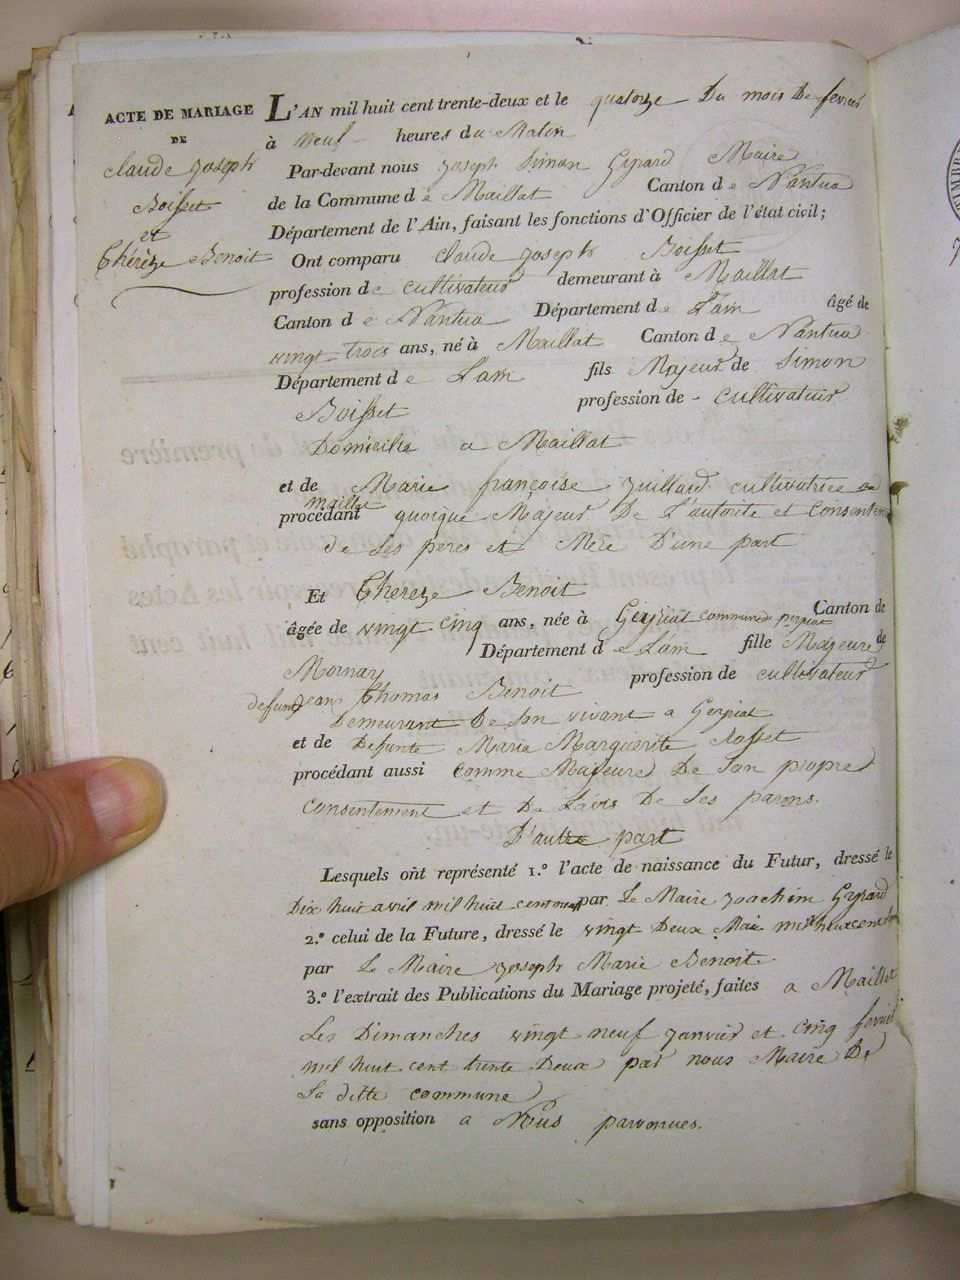 ACTE DE MARIAGE
DE
Claude Joseph
Boisset
et
Thérèze Benoit
L'AN mil huit cent trente-deux et le quatorze Du mois De fevrier
à Neuf heures du Matin
Par-devant nous Joseph Simon Gyrard Maire
de la Commune de Maillat Canton de Nantua
Département de l'Ain, faisant les fonctions d'Officier de l'état civil;
Ont comparu Claude Joseph Boisset
profession de cultivateur demeurant à Maillat
Canton de Nantua Département de L'ain âgé de
vingt-trois ans, né à Maillat Canton de Nantua
Département de L'ain fils Majeur de Simon
Boisset profession de - cultivateur
Domicilié a Maillat
et de Marie françoise Juillard cultivatrice
Maillat
procédant quoique Majeur De L'autorité et consentem
de Ses peres et Mere D'une part
Et Thereze Benoit
âgée de vingt cinq ans, née à Geyriat commune Canton de
Mornay Département de L'ain fille Majeure de
defunt Jean Thomas Benoit profession de cultivateur
Demeurant De Son vivant a Geyriat
et de Defunte Marie Marguerite Rosset
procédant aussi comme Majeure De Son propre
consentement et De L'avis De Ses parens.
D'autre part
Lesquels ont représenté 1.º l'acte de naissance du Futur, dressé le
Dix huit avril mil huit cent neuf par Le Maire Joachim Gyrard
2.º celui de la Future, dressé le vingt Deux Mai mil huit cent
par Le Maire Joseph Marie Benoit
3.º l'extrait des Publications du Mariage projeté, faites a Maillat
Les Dimanches vingt neuf Janvier et cinq fevrier
mil huit cent trente Deux par nous Maire De
La ditte commune
sans opposition a Nous parvenues.